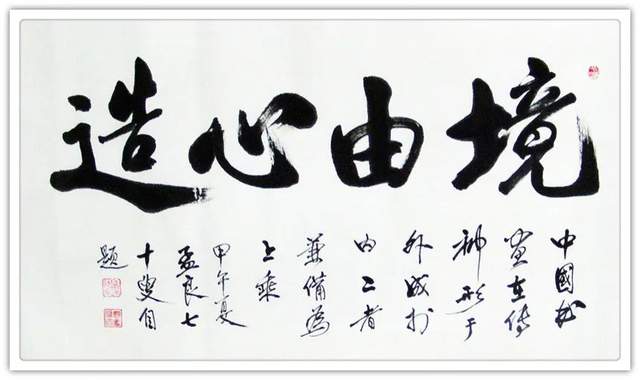 境由心造
中國书
畫在傳
神形于
外成於
内二者
兼備為
上乘
甲午夏
孟良七
十叟自
題